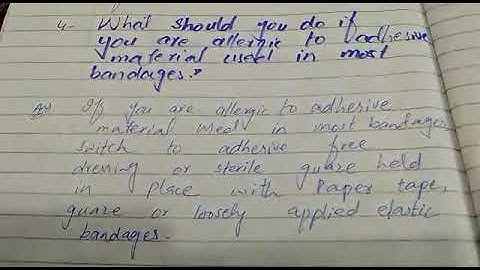 4- What should you do if
you are allergic to adhesive
material used in most
bandages?
Ans If you are allergic to adhesive
material used in most bandages,
switch to adhesive free
dressing or sterile guaze held
in place with Paper tape,
guaze or loosely applied elastic
bandages.